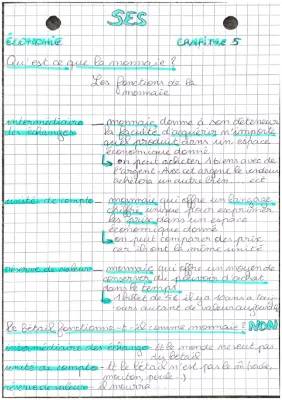 SES
ÉCONOMIE CHAPITRE 5
Qu'est ce que la monnaie ?
Les fonctions de la
monnaie
intermédiaire des échanges — monnaie donne à son détenteur
la faculté d'acquérir n'importe
quel produit dans un espace
économique donné
on peut acheter 1 bien avec de
l'argent. Avec cet argent le vendeur
achètera un autre bien ... ect
unité de compte — monnaie qui offre un langage
chiffré unique pour exprimer
les prix dans un espace
économique donné
on peut comparer des prix
car ils ont la même unité
réserve de valeur — monnaie qui offre un moyen de
conserver du pouvoir d'achat
dans le temps
1 billet de 5€ il y a 10 ans a tou-
jours autant de valeur aujourd'hui
le bétail fonctionne-t-il comme monnaie ? NON
intermédiaire des échange → tt le monde ne veut pas
du bétail
unité de compte → tt le bétail n'est pas le m̂
mouton, poule..)
réserve de valeur → il mourra